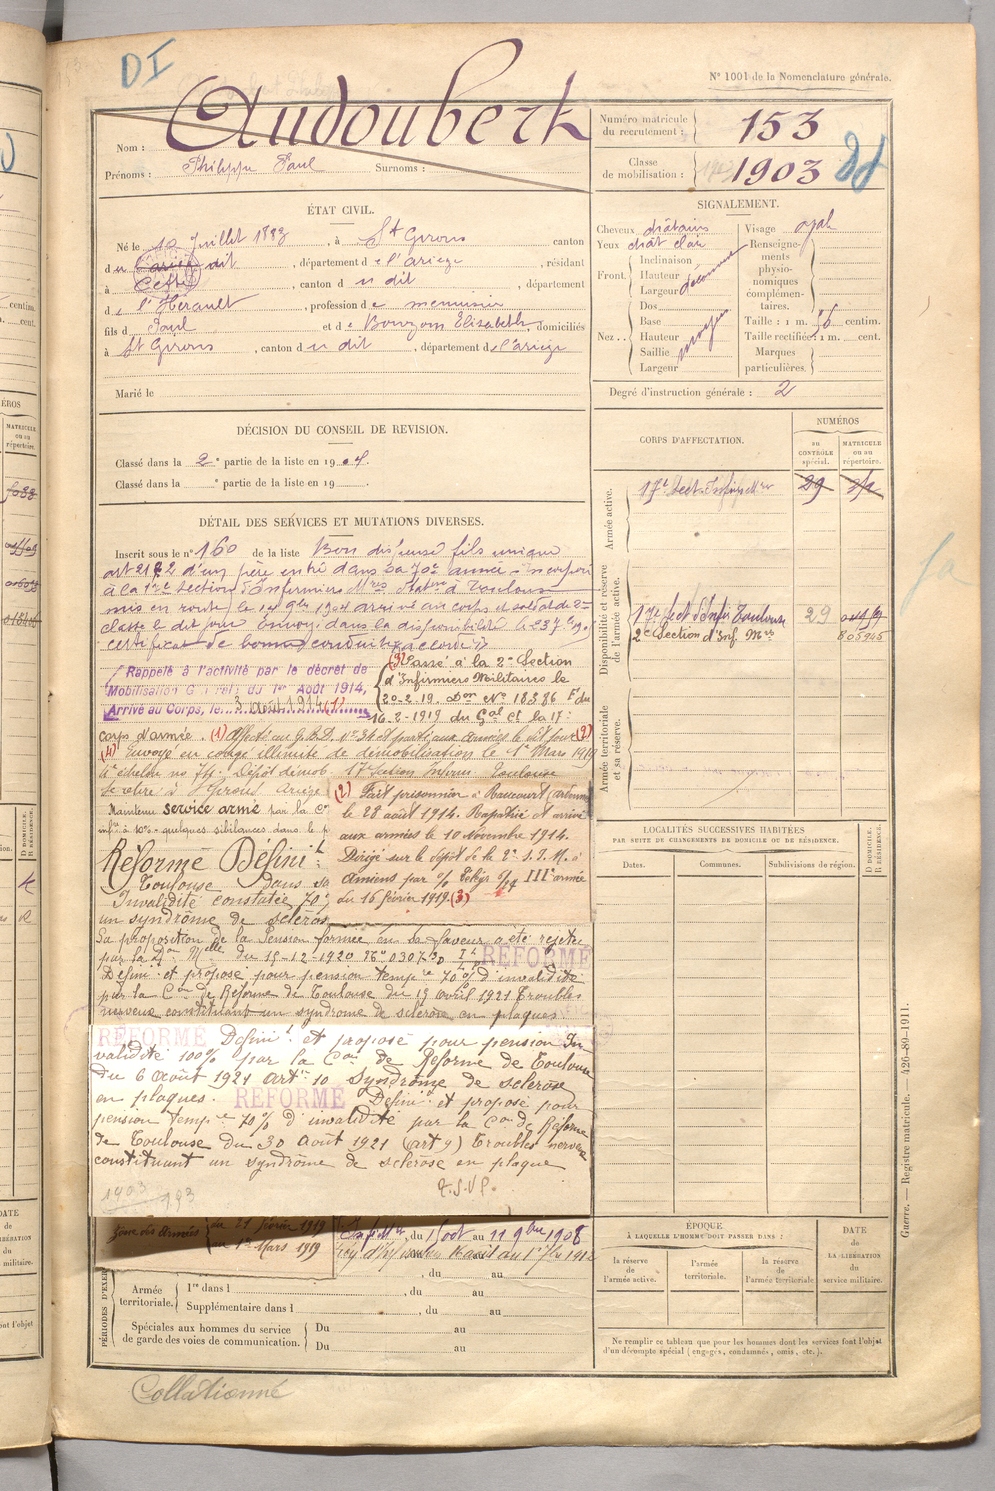 DI
N° 1001 de la Nomenclature générale.
Nom : Audoubert
Prénoms : Philippe Paul Surnoms :
Numéro matricule du recrutement : 153
Classe de mobilisation : 1903
ÉTAT CIVIL.
Né le 10 Juillet 1883, à St Girons canton
du dit, département de l'Ariège, résidant
à Cette, canton du dit, département
de l'Hérault, profession de menuisier
fils de Paul et de Bouzom Elisabeth, domiciliés
à St Girons, canton du dit, département de l'ariège
Marié le
SIGNALEMENT.
Cheveux châtains
Yeux chât clair
Front. Inclinaison
Hauteur
Largeur
Nez.. Dos
Base
Hauteur
Saillie
Largeur
moyen
Visage oval
Renseignements physionomiques complémentaires.
Taille : 1 m. 56 centim.
Taille rectifiée : 1 m. cent.
Marques particulières.
Degré d'instruction générale : 2
DÉCISION DU CONSEIL DE REVISION.
Classé dans la 2e partie de la liste en 1904.
Classé dans la e partie de la liste en 19
DÉTAIL DES SERVICES ET MUTATIONS DIVERSES.
Inscrit sous le n° 160 de la liste Bon dispensé fils unique
art 21§2 d'un père entré dans sa 70e année – incorporé
à la 17e Section d'Infirmiers Mres à Toulouse
mis en route le 14 9bre 1904 arrivé au corps et soldat de 2e
classe le dit jour Envoyé dans la disponibilité le 23 7bre
certificat de bonne conduite accordé
Rappelé à l'activité par le décret de
Mobilisation Générale du 1er Août 1914,
Arrivé au Corps, le 3 Août 1914 (1)
(3) Passé à la 2e Section
d'Infirmiers Militaires le
20-2-19. Don N° 18386 F du
16-2-1919 du Gal Ct la 17e
corps d'armée. (1) Affecté au G.B.D. n° 34 et parti aux armées le dit jour (2)
(4) Envoyé en congé illimité de démobilisation le 1er Mars 1919
4e échelon no Dépôt démob 17e Section Infirm. Toulouse
Se retire à St Girons Ariège
Maintenu service armé par la C
inf. à 10% quelques sibilances dans le p
Réformé Défini t
Toulouse dans sa
Invalidité constatée 70%
un syndrôme de scléros
(2) Fait prisonnier à Raucourt (Ardennes)
le 28 août 1914. Rapatrié et arrivé
aux armées le 10 Novembre 1914.
Dirigé sur le dépôt de la 2e S.I.M. à
Amiens par III° armée
du 16 février 1919. (3)
Sa proposition de la Pension formée en sa faveur a été rejetée
par la Don Melle du 15-12-1920 RÉFORMÉ
Défini t et proposé pour pension tempre 70% d'invalidité
par la Con de Réforme de Toulouse du 19 avril 1921 Troubles
nerveux constituant un syndrôme de sclérose en plaques
REFORMÉ Défini t et proposé pour pension In
validité 100% par la Con de Réforme de Toulouse
du 6 Août 1921 art. 10 Syndrôme de sclérose
en plaques. REFORMÉ Défini t et proposé pour
pension tempre 70% d'invalidité par la Con de Réforme
de Toulouse du 30 Août 1921 (art 7) Troubles nerveux
constituant un syndrôme de sclérose en plaque
1903
193
T.S.V.P.
Zone des Armées au 21 février 1919
au 1er Mars 1919
du 1 au 11 9bre 1908
, du au
PÉRIODES D'EXER
Armée territoriale. 1re dans l , du au
Supplémentaire dans l , du au
Spéciales aux hommes du service de garde des voies de communication. Du au
Du au
CORPS D'AFFECTATION.
NUMÉROS
au CONTRÔLE spécial.
MATRICULE ou au répertoire.
Armée active.
17e Sect. Infirmiers Mres 29
Disponibilité et réserve de l'armée active.
17e Sect d'Inf Toulouse 29
2e Section d'Inf. Mres
Armée territoriale et sa réserve.
LOCALITÉS SUCCESSIVES HABITÉES
PAR SUITE DE CHANGEMENTS DE DOMICILE OU DE RÉSIDENCE.
Dates. Communes. Subdivisions de région.
D DOMICILE.
R RÉSIDENCE.
ÉPOQUE
À LAQUELLE L'HOMME DOIT PASSER DANS :
la réserve de l'armée active.
l'armée territoriale.
la réserve de l'armée territoriale
DATE DE LA LIBÉRATION du service militaire.
Ne remplir ce tableau que pour les hommes dont les services font l'objet
d'un décompte spécial (engagés, condamnés, omis, etc.).
Guerre. — Registre matricule. — 426-89-1911.
Collationné